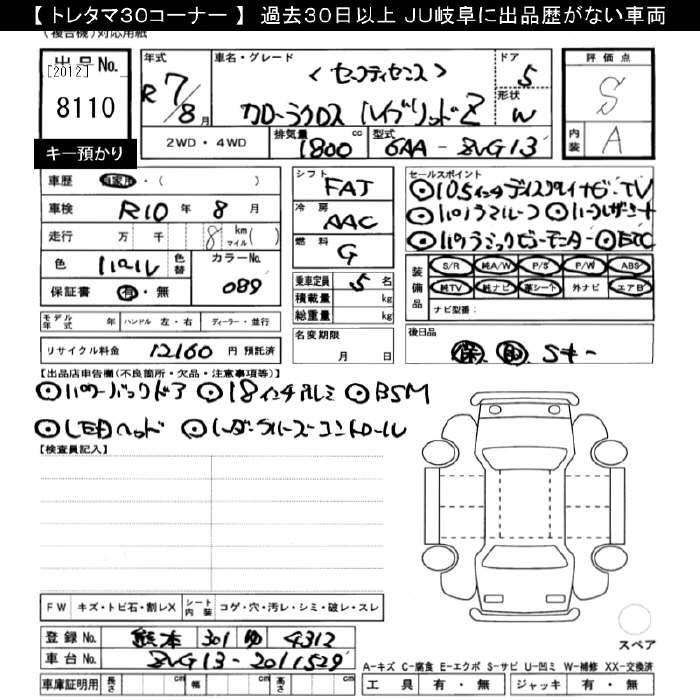 【 トレタマ30コーナー 】 過去30日以上 JU岐阜に出品歴がない車両
(複合機)対応用紙
出品No.
[2012]
8110
キー預かり
年式
R 7/8月
車名・グレード
<セーフティセンス>
カローラクロス ハイブリッドZ
ドア
5
形状
W
評価点
S
内装
A
2WD・4WD
排気量
1800 cc
型式
6AA-ZVG13
車歴 自家用・( )
車検 R10年 8月
走行 万 千 8 km マイル( )
色 パール
色替
カラーNo.
089
保証書 有・無
モデル年式 年 ハンドル 左・右 ディーラー・並行
リサイクル料金 12160 円 預託済
シフト
FAT
冷房
AAC
燃料
G
乗車定員 5 名
積載量 kg
総重量 kg
名変期限
月 日
セールスポイント
◎10.5インチディスプレイナビ・TV
◎パノラマルーフ ◎ハーフレザーシート
◎パノラミックビューモニター ◎ETC
装備品
S/R 純A/W P/S P/W ABS
純TV 純ナビ 革シート 外ナビ エアB
ナビ型番:
後日品
保 取 Sキー
【出品店申告欄(不良箇所・欠品・注意事項等)】
◎パワーバックドア ◎18インチアルミ ◎BSM
◎LEDヘッド ◎レーダークルーズコントロール
【検査員記入】
FW キズ・トビ石・割レX シート内装 コゲ・穴・汚レ・シミ・破レ・スレ
登録No. 熊本 301 ゆ 4312
車台No. ZVG13-2011529
車庫証明用 長さ cm 幅 cm 高さ cm
スペア
A-キズ C-腐食 E-エクボ S-サビ U-凹ミ W-補修 XX-交換済
工具 有・無 ジャッキ 有・無